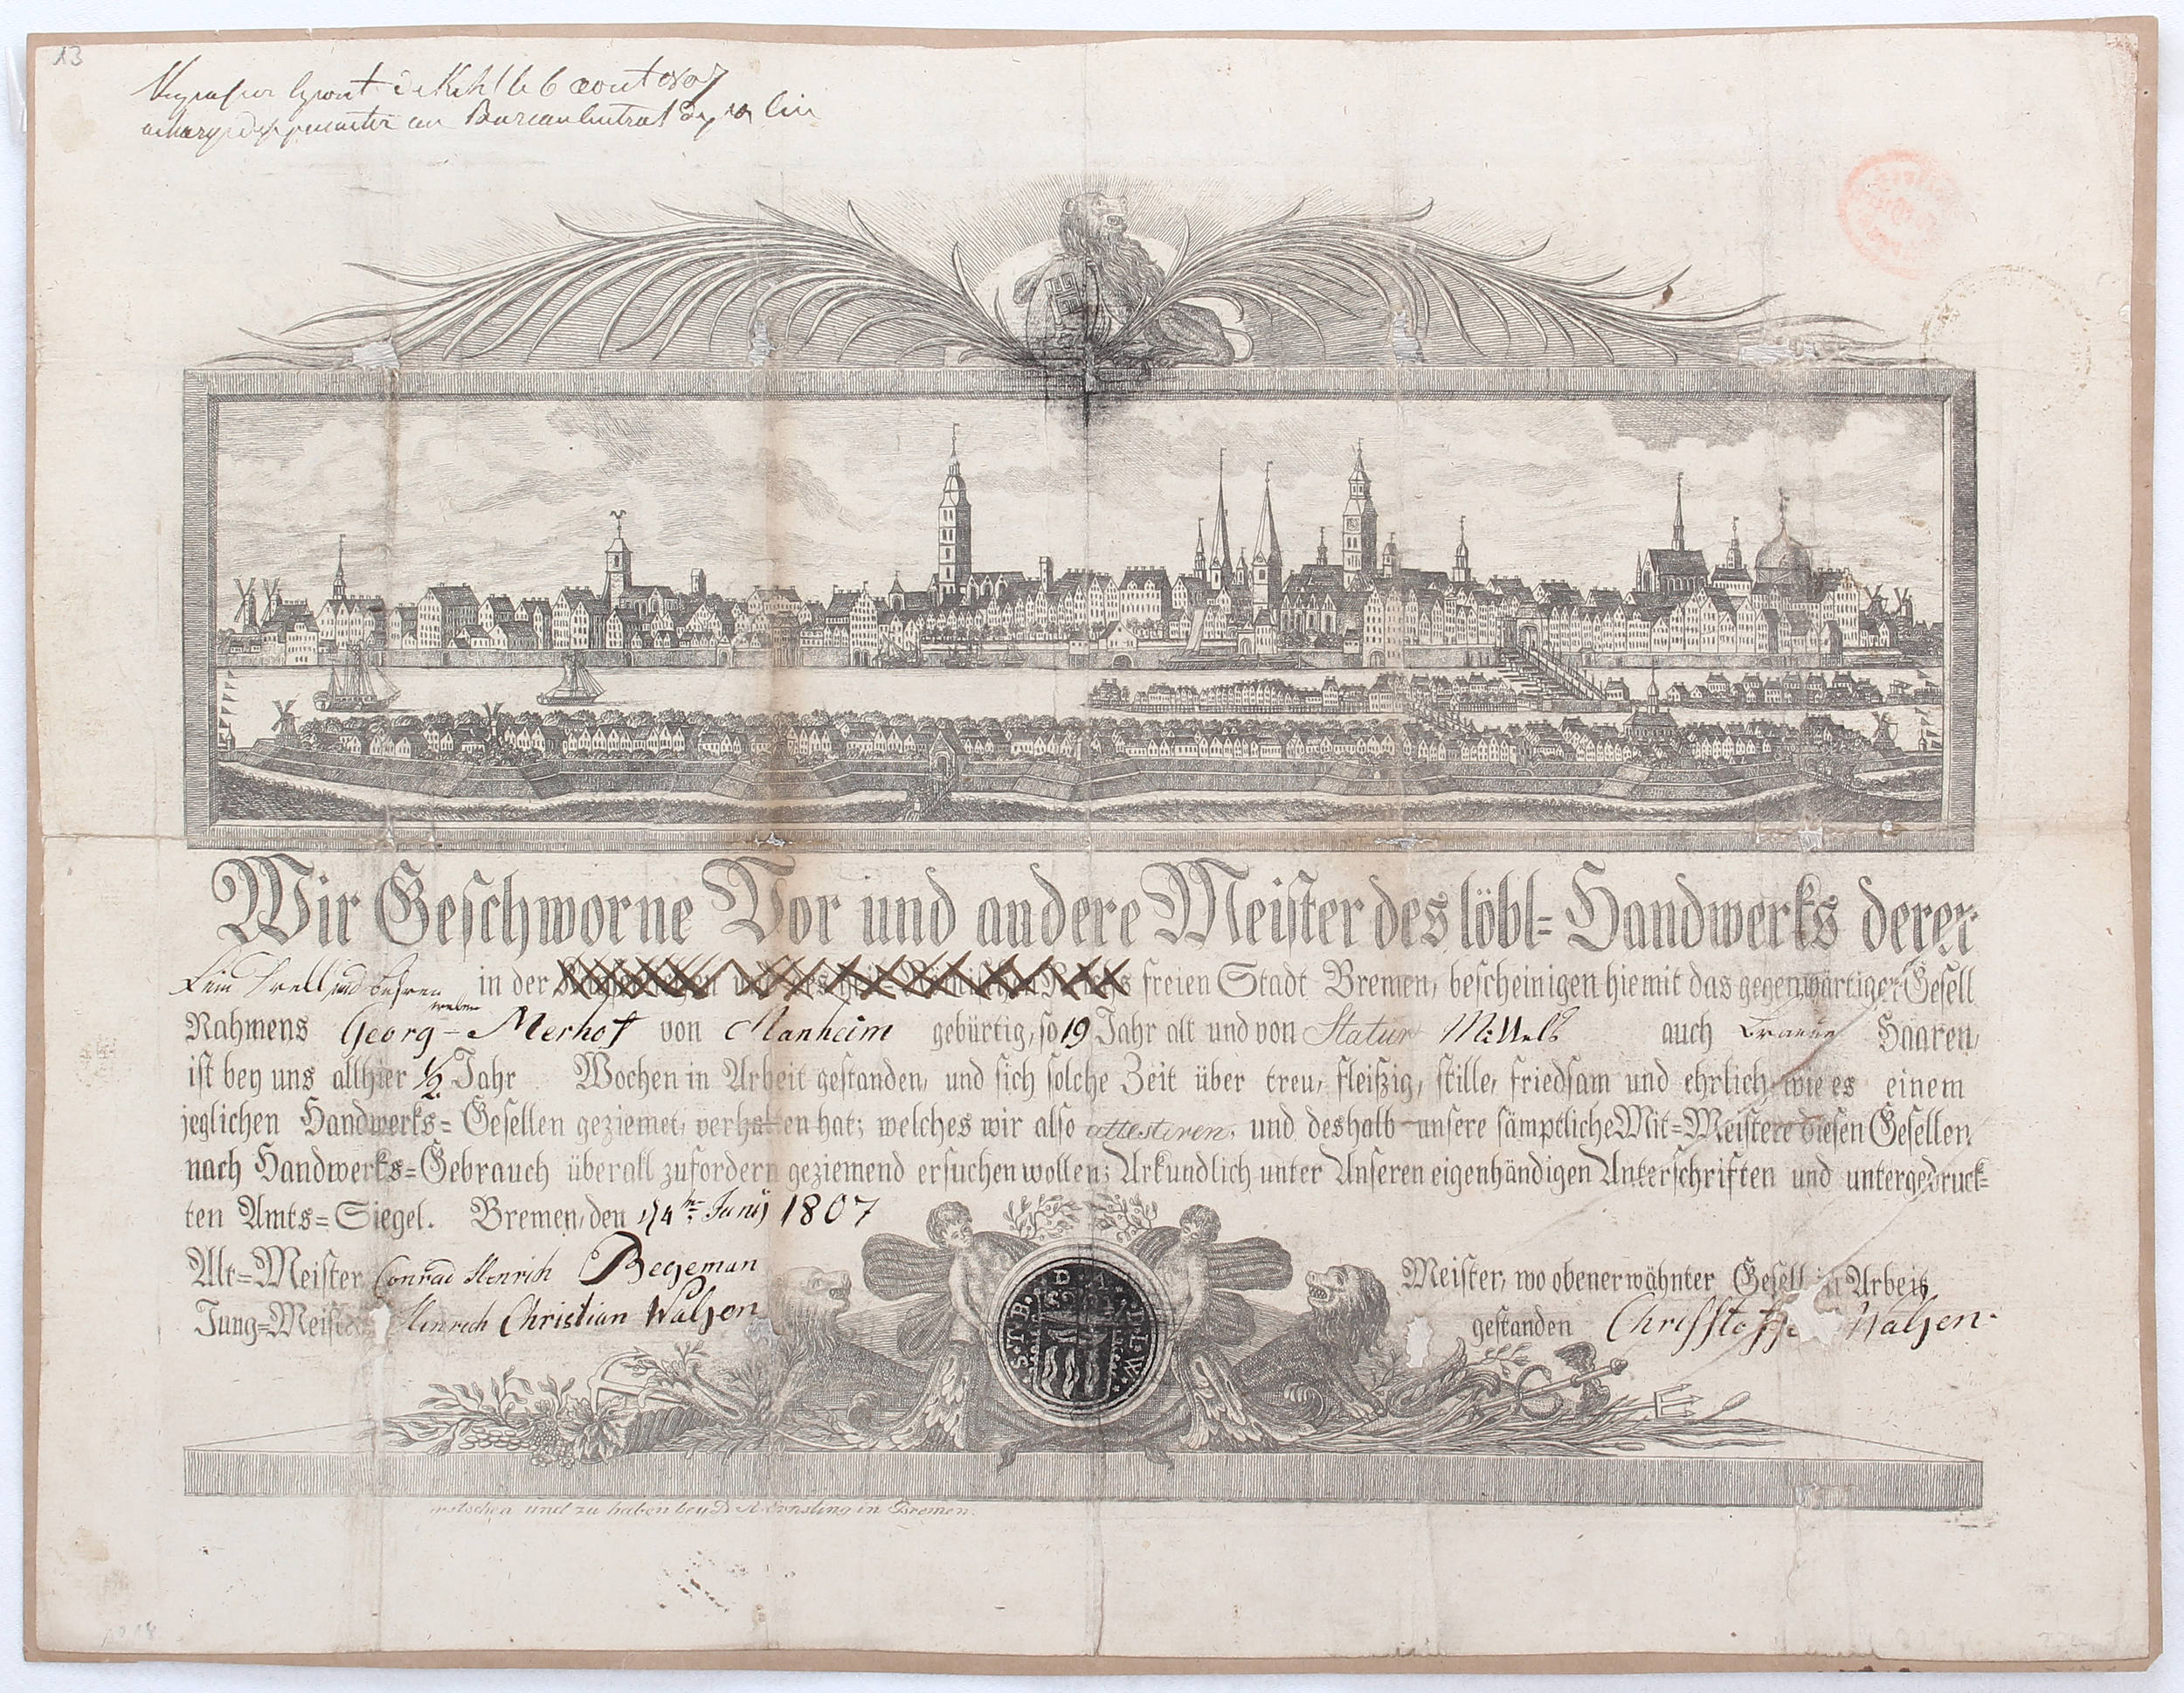 13
le 6 aout 1807
au Bureau
Wir Geschworne Vor und andere Meister des löbl= Handwerks derer
und in der freien Stadt Bremen, bescheinigen hiemit das gegenwärtiger Gesell
Nahmens Georg - Merhof von Manheim gebürtig, so 19 Jahr alt und von Statur Mittels auch braune Haaren,
ist bey uns allhier 1/2 Jahr Wochen in Arbeit gestanden, und sich solche Zeit über treu, fleißig, stille, friedsam und ehrlich wie es einem
jeglichen Handwerks= Gesellen geziemet, verhalten hat; welches wir also attestiren, und deshalb unsere sämptliche Mit=Meistere diesen Gesellen
nach Handwerks=Gebrauch überall zufordern geziemend ersuchen wollen; Urkundlich unter Unseren eigenhändigen Unterschriften und untergedruck=
ten Amts=Siegel. Bremen, den Juny 1807
Alt=Meister Conrad Henrich Begeman
Jung=Meister Henrich Christian Walsen
Meister, wo obenerwähnter Gesell in Arbeit
gestanden Walsen
und zu haben bey D A Ernsting in Bremen.